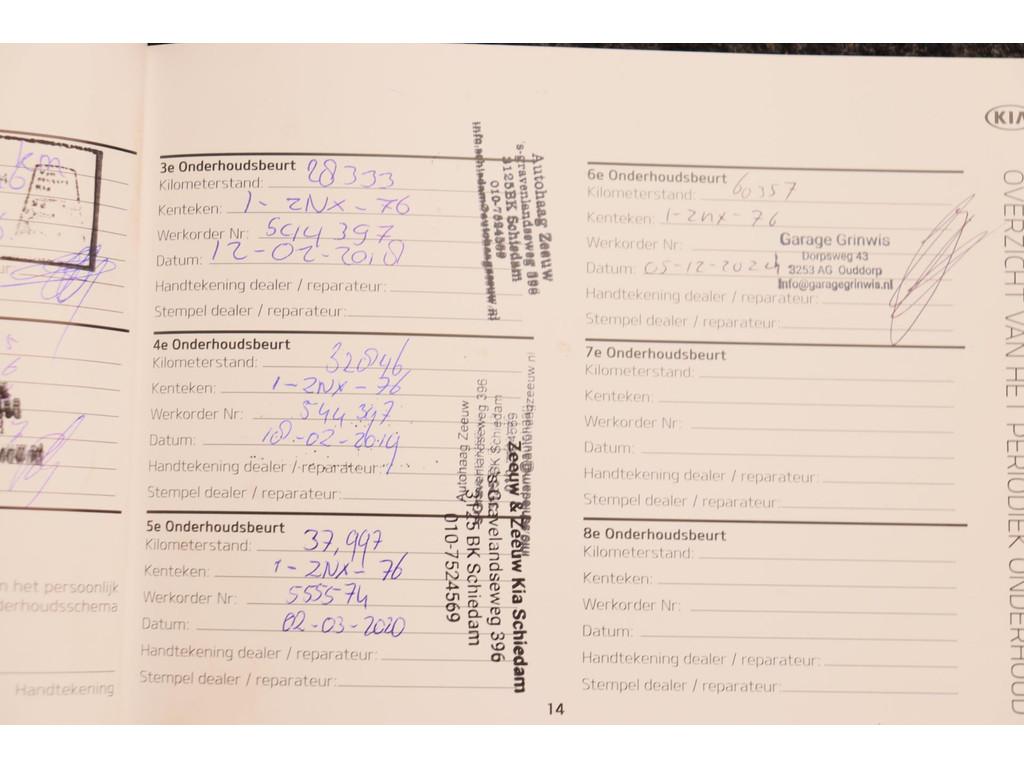 km
3e Onderhoudsbeurt
Kilometerstand: 28333
Kenteken: 1-ZNX-76
Werkorder Nr: 544397
Datum: 12-02-2018
Handtekening dealer / reparateur:
Stempel dealer / reparateur:
Autohaag Zeeuw
's-gravenlandseweg 396
3125BK Schiedam
010-7524569
info.schiedam@autohaagzeeuw.nl
4e Onderhoudsbeurt
Kilometerstand: 32846
Kenteken: 1-ZNX-76
Werkorder Nr: 544397
Datum: 18-02-2019
Handtekening dealer / reparateur:
Stempel dealer / reparateur:
Autohaag Zeeuw
5e Onderhoudsbeurt
Kilometerstand: 37,997
Kenteken: 1-ZNX-76
Werkorder Nr: 555574
Datum: 02-03-2020
Handtekening dealer / reparateur:
Stempel dealer / reparateur:
Zeeuw & Zeeuw Kia Schiedam
's-Gravelandseweg 396
3125 BK Schiedam
010-7524569
6e Onderhoudsbeurt
Kilometerstand: 60357
Kenteken: 1-ZNX-76
Werkorder Nr:
Datum: 05-12-2024
Handtekening dealer / reparateur:
Stempel dealer / reparateur:
Garage Grinwis
Dorpsweg 43
3253 AG Ouddorp
Info@garagegrinwis.nl
7e Onderhoudsbeurt
Kilometerstand:
Kenteken:
Werkorder Nr:
Datum:
Handtekening dealer / reparateur:
Stempel dealer / reparateur:
8e Onderhoudsbeurt
Kilometerstand:
Kenteken:
Werkorder Nr:
Datum:
Handtekening dealer / reparateur:
Stempel dealer / reparateur:
n het persoonlijk
derhoudsschema
Handtekening
14
KIA
OVERZICHT VAN HET PERIODIEK ONDERHOUD